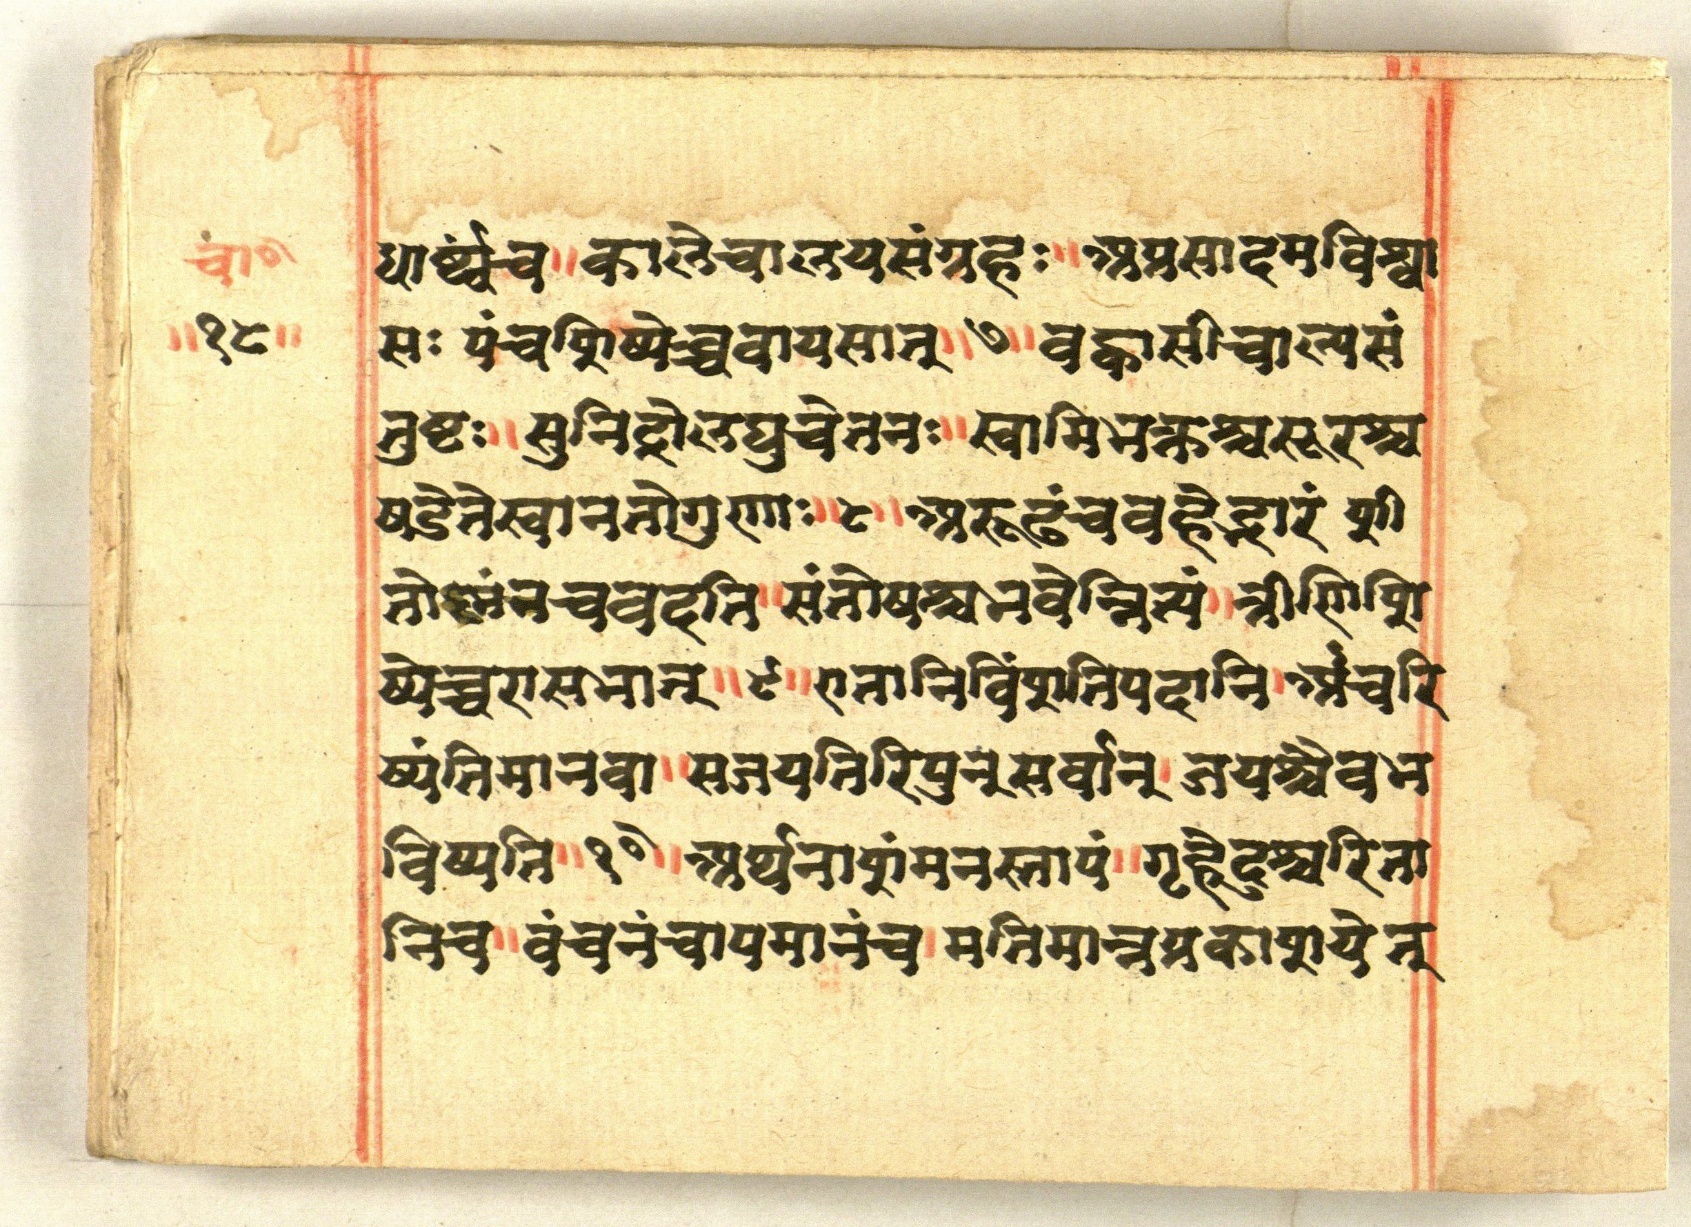 चां०
॥१८॥
धार्ष्ट्यंच॥कालेचालयसंग्रहः॥अप्रसादमविश्वा
सः पंचशिष्येच्चवायसात्॥७॥बह्वासीचाल्पसं
तुष्टः॥सुनिद्रोलघुचेतनः॥स्वामिभक्तश्चसूरश्च
षडेतेस्वानतोगुणाः॥८॥अरूढंचवहेद्भारं शी
तोष्णंनचवदति॥संतोषश्चभवेन्नित्यं॥त्रीणिशि
ष्येच्चरासभात्॥९॥एतानिविंशतिपदानि।अंचरि
ष्यंतिमानवा॥सजयतिरिपुन्सर्वान्।जयश्चैवभ
विष्यति॥१०॥अर्थनाशंमनस्तापं॥गृहेदुश्चरिता
निच॥वंचनंचापमानंच।मतिमान्नप्रकाशयेत्